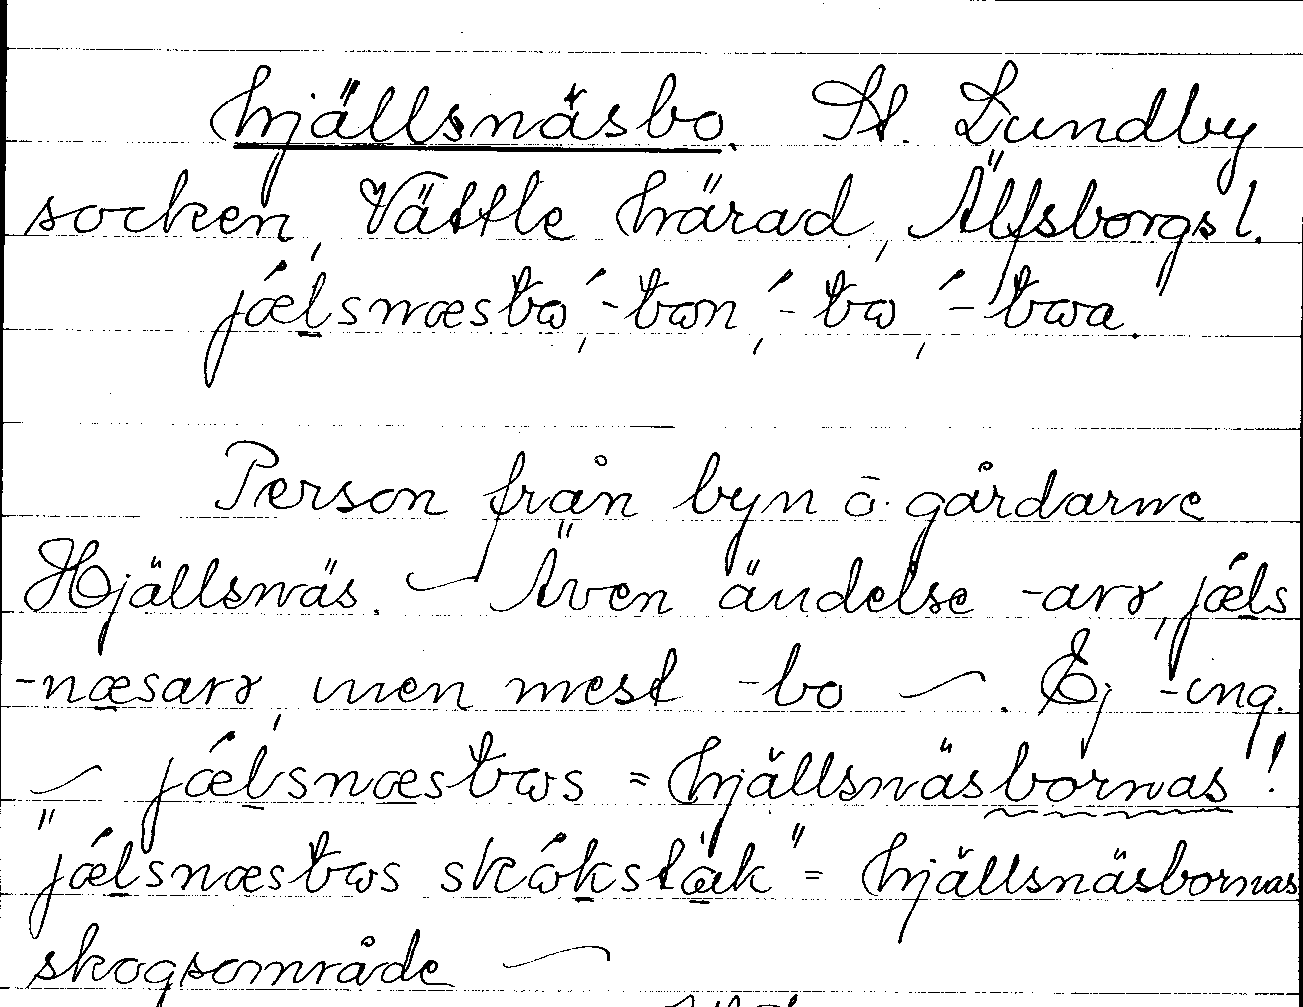 hjällsnäsbo. St. Lundby
socken, Vättle härad, Älfsborgs l.
jǽlsnæsbω, -bωn, -bω, -bωa.
Person från byn o. gårdarne
Hjällsnäs. — Även ändelse -arə, jǽls
-næsarə, men mest -bo —. Ej -ing.
— jǽlsnæsbωs = hjällsnäsbornas!
"jǽlsnæsbωs skωkstäk" = hjällsnäsbornas
skogsområde —